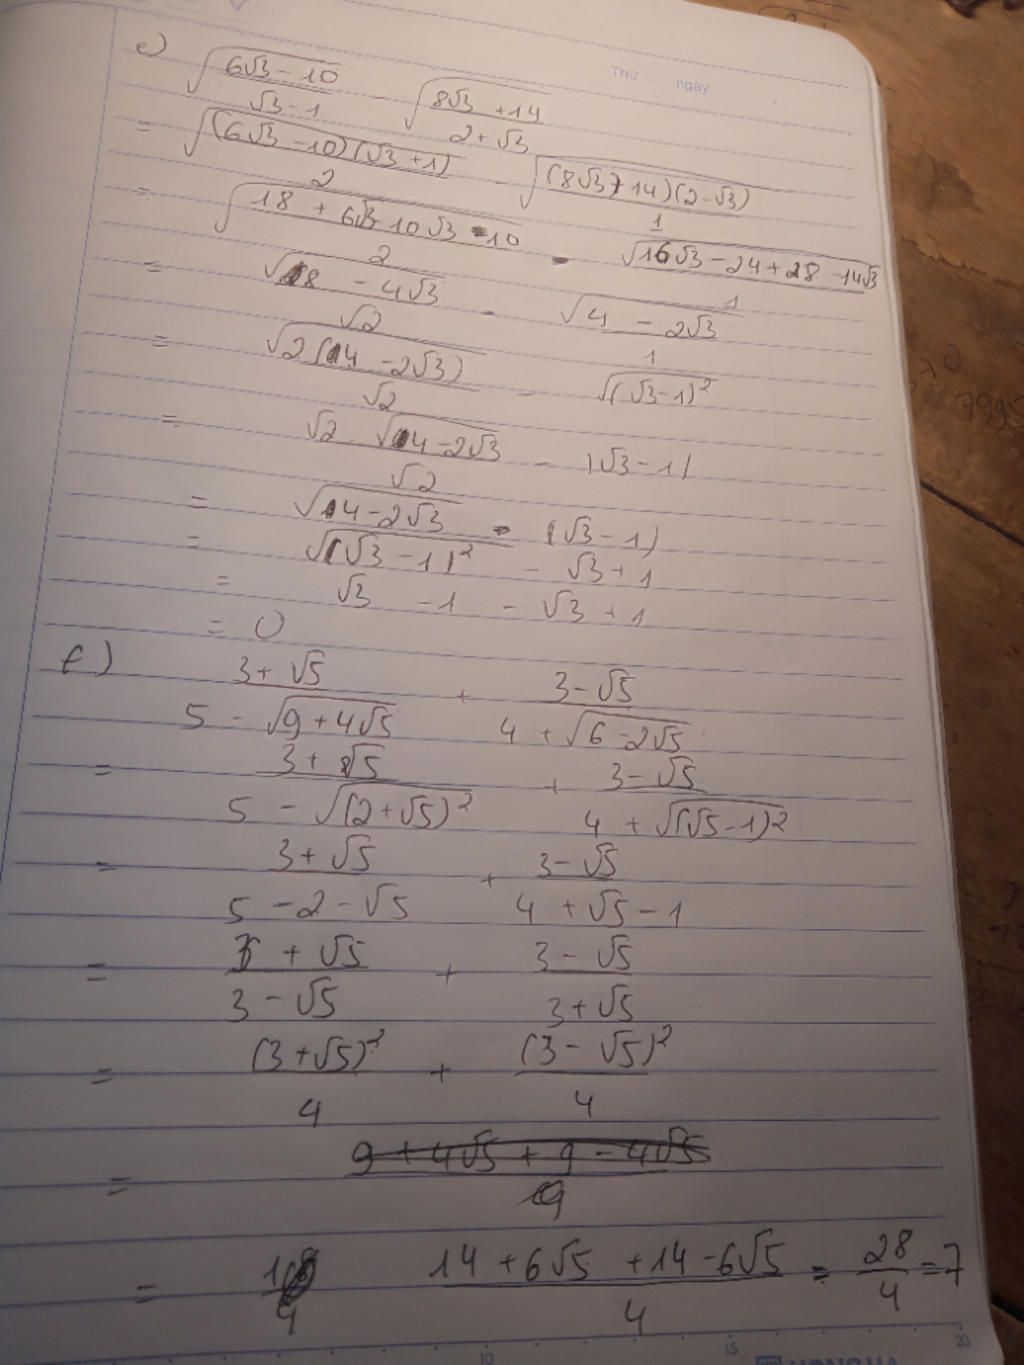 Thứ ngày
e) √((6√3 - 10)/(√3 - 1)) - √((8√3 + 14)/(2 + √3))
= √((6√3 - 10)(√3 + 1)/2) - √((8√3 + 14)(2 - √3)/1)
= √((18 + 6√3 - 10√3 - 10)/2) - √(16√3 - 24 + 28 - 14√3)/1
= √(8 - 4√3)/√2 - √(4 - 2√3)/1
= √(2(4 - 2√3))/√2 - √((√3 - 1)²)
= √2 . √(4 - 2√3)/√2 - |√3 - 1|
= √(4 - 2√3) - (√3 - 1)
= √((√3 - 1)²) - √3 + 1
= √3 - 1 - √3 + 1
= 0
f) (3 + √5)/(5 - √(9 + 4√5)) + (3 - √5)/(4 + √(6 - 2√5))
= (3 + √5)/(5 - √((2 + √5)²)) + (3 - √5)/(4 + √((√5 - 1)²))
= (3 + √5)/(5 - 2 - √5) + (3 - √5)/(4 + √5 - 1)
= (3 + √5)/(3 - √5) + (3 - √5)/(3 + √5)
= (3 + √5)²/4 + (3 - √5)²/4
= (9 + 4√5 + 9 - 4√5)/9
= (14 + 6√5 + 14 - 6√5)/4 = 28/4 = 7
10 15 20